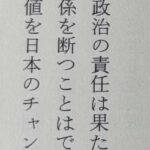 政治の責任は果た
係を断つことはで
値を日本のチャン